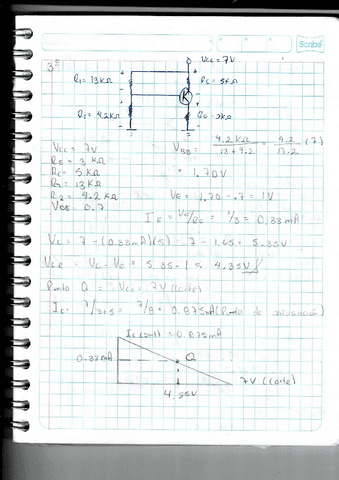 Scribe
3º
Vcc = 7V
R1 = 13KΩ
Rc = 5KΩ
R2 = 4.2KΩ
Re = 3KΩ
Vcc = 7V
RE = 3 KΩ
Rc = 5 KΩ
R1 = 13KΩ
R2 = 4.2 KΩ
VBE = 0.7
VBB = 4.2 KΩ / 13 + 4.2 = 4.2 / 17.2 (7)
= 1.70V
VE = 1.70 - .7 = 1V
IE = VE/RE = 1/3 = 0.33mA
Vc = 7 - (0.33mA)(5) = 7 - 1.65 = 5.35V
VCE = Vc - VE = 5.35 - 1 = 4.35V
Punto Q = Vcc = 7V (corte)
Ic = 7/3+5 = 7/8 = 0.875mA (Punto de saturación)
Ic (sat) = 0.875mA
0.33mA
Q
7V (corte)
4.35V